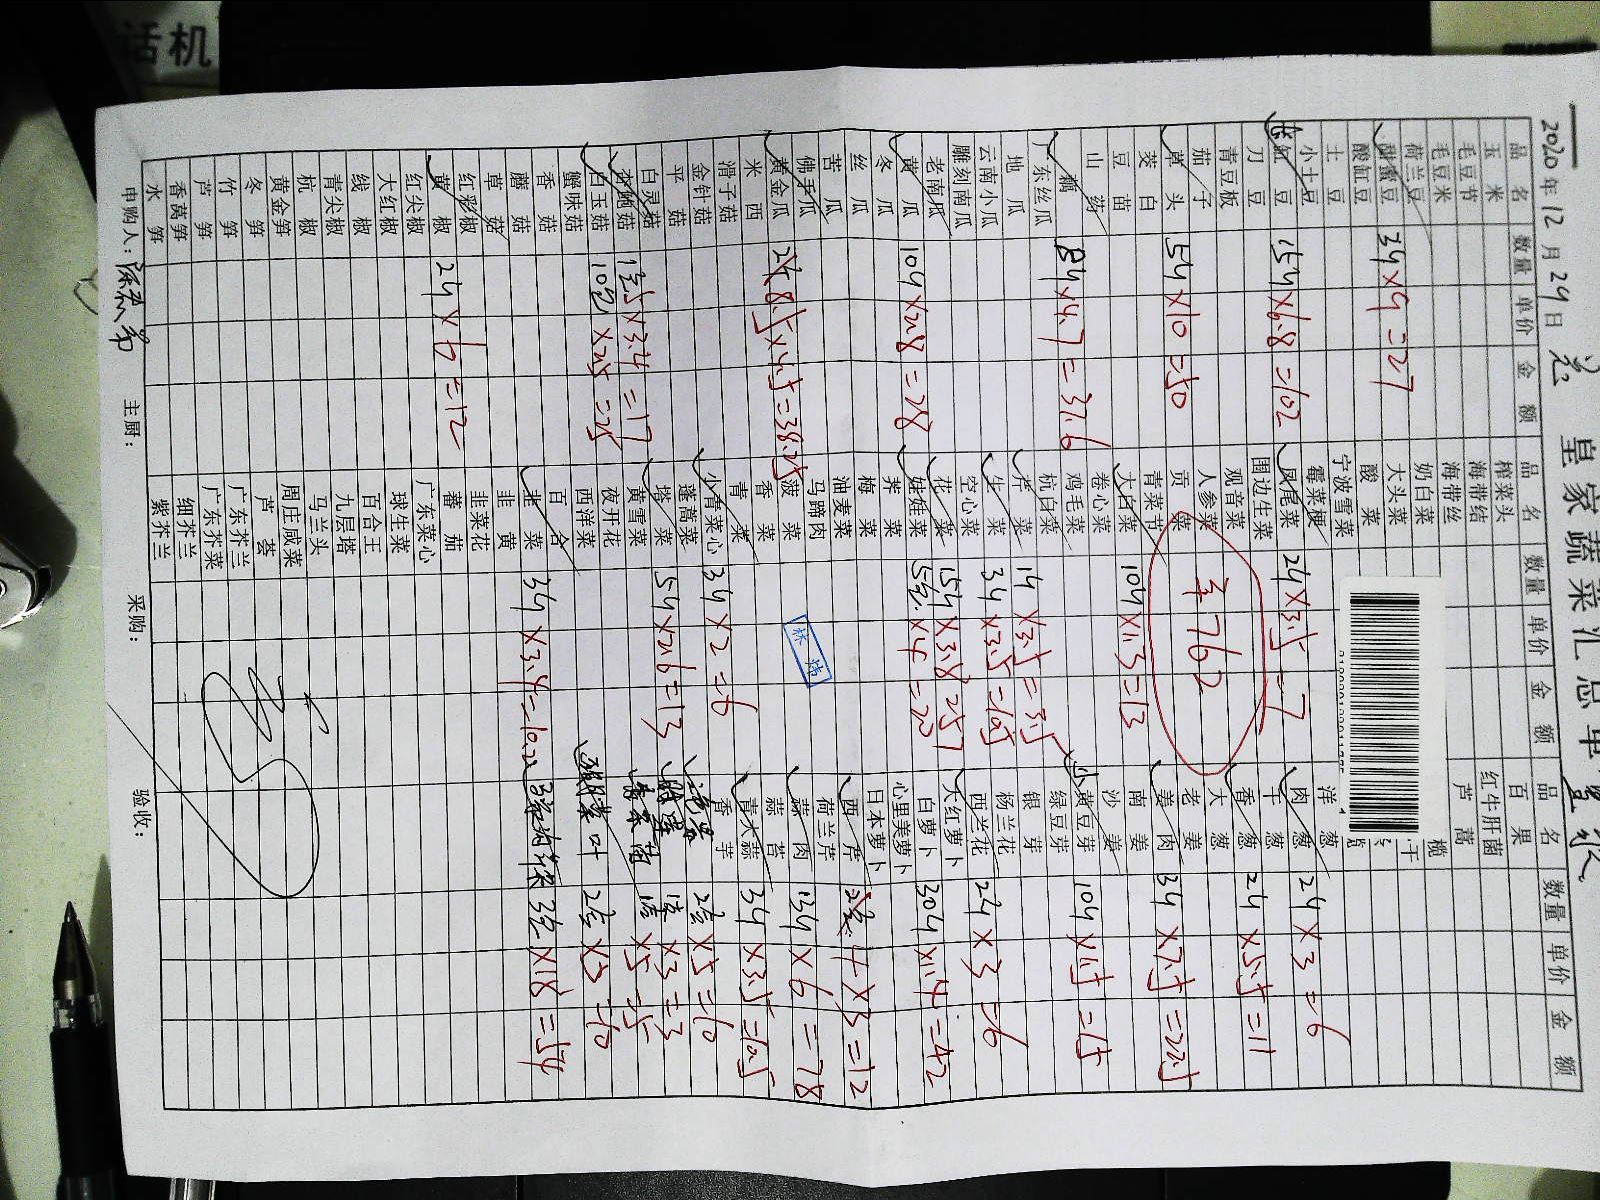 话机
皇家蔬菜汇总单
2020年12月29日
品名 数量 单价 金额 品名 数量 单价 金额 品名 数量 单价 金额
玉米 榨菜头 百果
毛豆节 海带结 红牛肝菌
毛豆米 海带丝 芦蒿
荷兰豆 奶白菜
甜蜜豆 3斤×9=27 大头菜
酸缸豆 酸菜
土豆 宁波雪菜 洋葱
小土豆 霉菜梗 肉葱 2斤×3=6
缸豆 15斤×6.8=102 凤尾菜 2斤×3.5=7 干葱
刀豆 围边生菜 香葱 2斤×5.5=11
青豆板 观音菜 大葱
茄子 人参菜 老姜
草头 5斤×10=50 贡菜 姜肉 3斤×7.5=22.5
茭白 青菜节 南姜
豆苗 大白菜 10斤×1.3=13 沙姜
山药 卷心菜 小黄豆芽 10斤×1.5=15
藕 8斤×4.7=37.6 鸡毛菜 绿豆芽
广东丝瓜 杭白菜 银芽
地瓜 芹菜 1斤×3.5=3.5 杨兰花
云南小瓜 生菜 3斤×3.5=10.5 西兰花 2斤×3=6
雕刻南瓜 空心菜 大红萝卜
老南瓜 花菜 15斤×3.8=57 白萝卜 30斤×1.4=42
黄瓜 10斤×2.8=28 娃娃菜 5包×4=20 心里美萝卜
冬瓜 荠菜 日本萝卜
丝瓜 梅菜 西芹 4×3=12
苦瓜 油麦菜 荷兰芹
佛手瓜 马蹄肉 蒜肉 13斤×6=78
黄金瓜 8.5斤×4.5=38.25 菠菜 蒜苔
米西 香菜 青大蒜 3斤×3.5=10.5
滑子菇 青菜 香芋
金针菇 小青菜心 3斤×2=6 2盒×5=10
平菇 蓬蒿菜 1盒×3=3
白灵菇 塔菜 5斤×2.6=13 1盒×5=5
杏鲍菇 5斤×3.4=17 黄雪菜
白玉菇 10包×2.5=25 夜开花 2盒×5=10
蟹味菇 西洋菜
香菇 百合
蘑菇 韭菜 3斤×3.4=10.2 3包×18=54
草菇 韭黄
红彩椒 韭菜花
黄椒 2斤×6=12 蕃茄
红尖椒 广东菜心
大红椒 球生菜
线椒 百合王
青尖椒 九层塔
杭椒 马兰头
黄金笋 周庄咸菜
冬笋 芦荟
竹笋 广东芥兰
芦笋 广东芥菜
香莴笋 细芥兰
水笋 紫芥兰
¥762
林炜
申购人: 主厨: 采购: 验收: